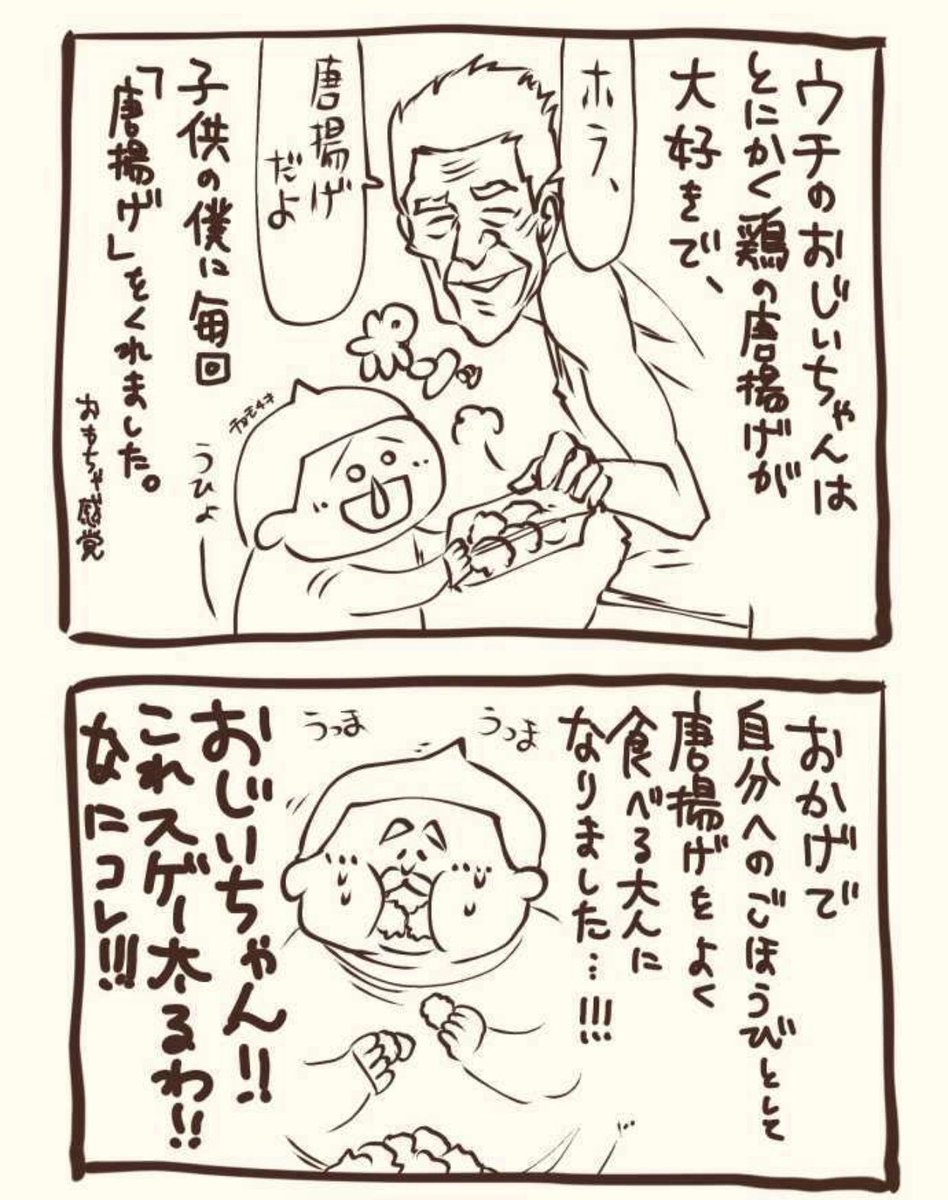 ウチのおじいちゃんは
とにかく鶏の唐揚げが
大好きで、
ホラ、
唐揚げ
だよ
ポンッ
子供の僕に毎回
「唐揚げ」をくれました。
おもちゃ感覚
チョモチキ
うひょー
おかげで
自分へのごほうびとして
唐揚げをよく
食べる大人に
なりました…!!!
うっま
うっま
おじいちゃん!!
これスゲー太るわ!!
なにコレ!!!